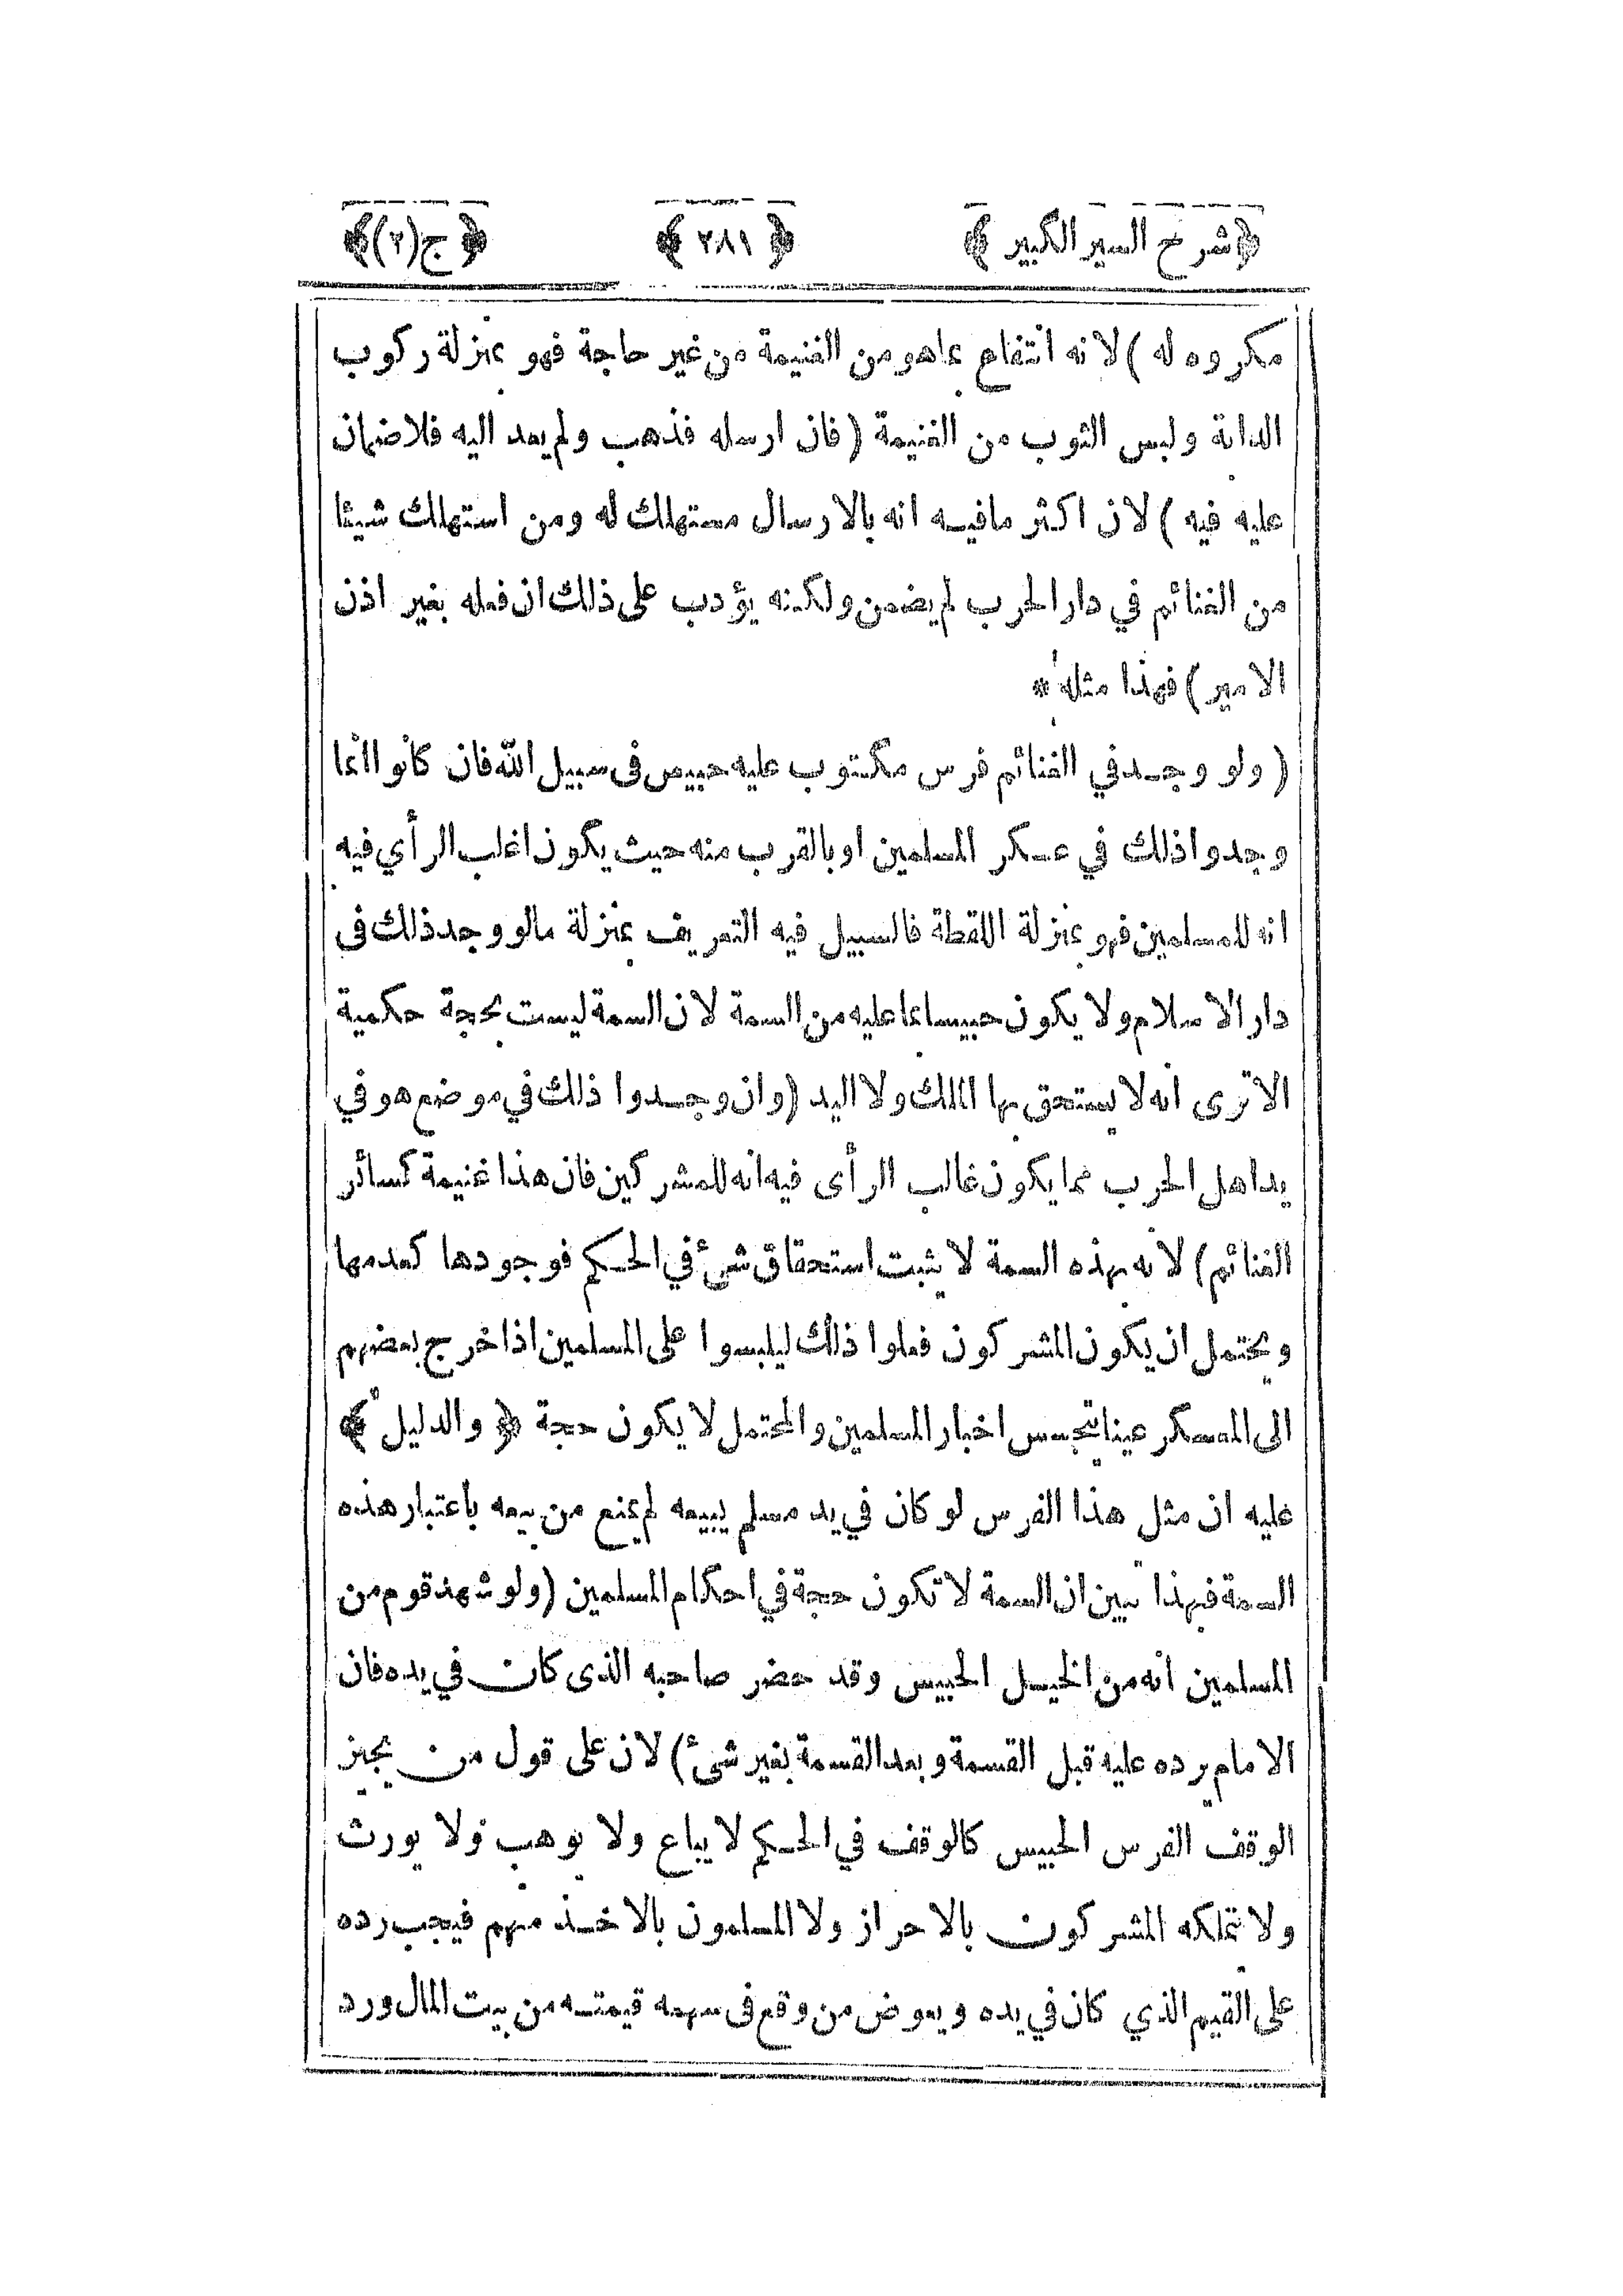 ﴿ شرح السير الكبير ﴾ ﴿ ٢٨١ ﴾ ﴿ ج(٢) ﴾
مكروه له ) لانه انتفاع بما هو من الغنيمة من غير حاجة فهو بمنزلة ركوب
الدابة ولبس الثوب من الغنيمة ( فان ارسله فذهب ولم يعد اليه فلا ضمان
عليه فيه ) لان اكثر ما فيه انه بالارسال مستهلك له ومن استهلك شيئا
من الغنائم في دار الحرب لم يضمن ولكنه يؤدب على ذلك ان فعله بغير اذن
الامير ) فهذا مثله *
( ولو وجد في الغنائم فرس مكتوب عليه حبيس فى سبيل الله فان كانوا انما
وجدوا ذلك في عسكر المسلمين او بالقرب منه حيث يكون اغلب الرأي فيه
انه للمسلمين فهو بمنزلة اللقطة فالسبيل فيه التعريف بمنزلة مالو وجد ذلك فى
دار الاسلام ولا يكون حبيسا بما عليه من السمة لان السمة ليست بحجة حكمية
الا ترى انه لا يستحق بها الملك ولا اليد ( وان وجدوا ذلك في موضع هو في
يد اهل الحرب مما يكون غالب الرأى فيه انه للمشركين فان هذا غنيمة كسائر
الغنائم ) لانه بهذه السمة لا يثبت استحقاق شئ في الحكم فوجودها كعدمها
ويحتمل ان يكون المشركون فعلوا ذلك ليلبسوا على المسلمين اذا خرج بعضهم
الى المعسكر عينا يتجسس اخبار المسلمين والمحتمل لا يكون حجة ﴿ والدليل ﴾
عليه ان مثل هذا الفرس لو كان في يد مسلم يبيعه لم يمنع من بيعه باعتبار هذه
السمة فبهذا تبين ان السمة لا تكون حجة في احكام المسلمين ( ولو شهد قوم من
المسلمين انه من الخيل الحبيس وقد حضر صاحبه الذى كان في يده فان
الامام يرده عليه قبل القسمة وبعد القسمة بغير شئ ) لان على قول من يجيز
الوقف الفرس الحبيس كالوقف في الحكم لا يباع ولا يوهب ولا يورث
ولا تملكه المشركون بالاحراز ولا المسلمون بالاخذ منهم فيجب رده
على القيم الذي كان في يده ويعوض من وقع فى سهمه قيمته من بيت المال ورد